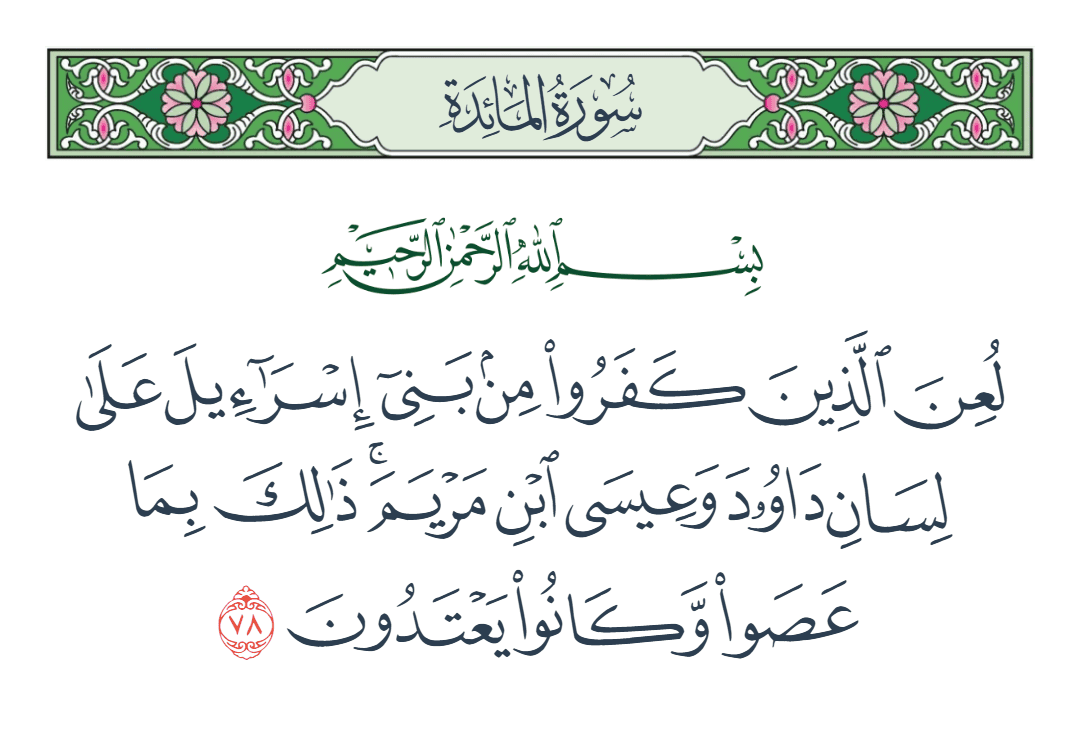 سُورَةُ المَائِدَةِ
بِسْمِ ٱللَّهِ ٱلرَّحْمَٰنِ ٱلرَّحِيمِ
لُعِنَ ٱلَّذِينَ كَفَرُوا۟ مِنۢ بَنِىٓ إِسْرَٰٓءِيلَ عَلَىٰ
لِسَانِ دَاوُۥدَ وَعِيسَى ٱبْنِ مَرْيَمَ ۚ ذَٰلِكَ بِمَا
عَصَوا۟ وَّكَانُوا۟ يَعْتَدُونَ ٧٨